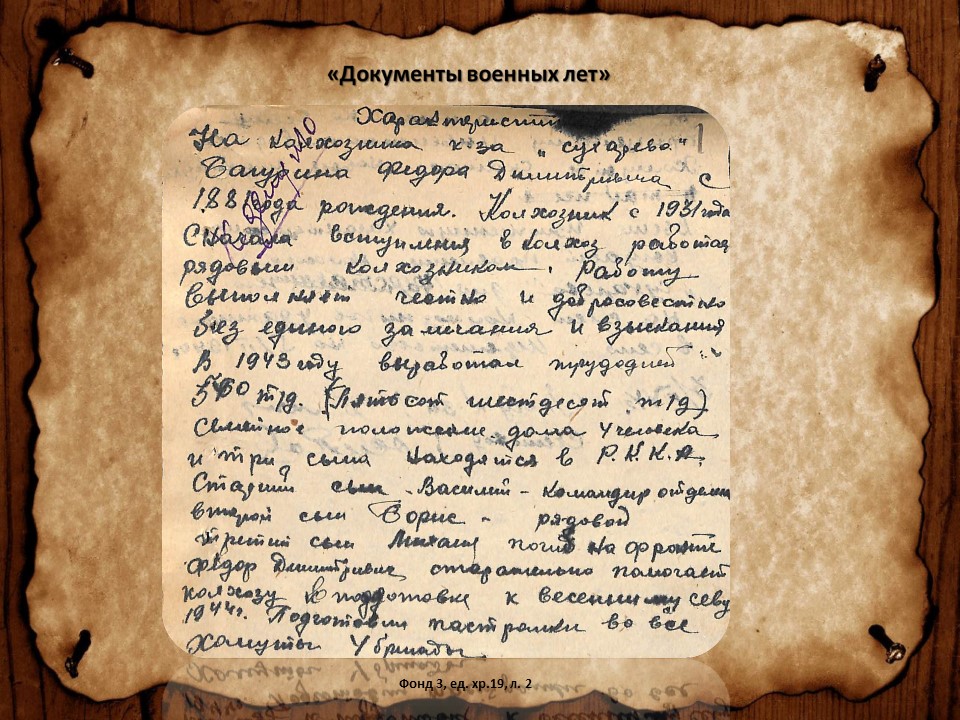 «Документы военных лет»
Характеристик
1
На колхозника к-за „сухарево"
Федора Димитрьивича с
188 года рождения. Колхозник с 1931 года
С начала вступления в колхоз работал
рядовым колхозником. Работу
выполняет честно и добросовестно
без единого замечания и взыскания
В 1943 году выработал трудодней
560 т/д. (Пятьсот шестдесят т/д)
Семейное положение дома 4 человека
и три сына находятся в Р.К.К.А.
Старший сын - Василий - командир отделен
второй сын Борис - рядовой
третий сын Михаил погиб на фронте
Федор Димитривич старательно помогает
колхозу в подготовке к весеннему севу
1944г. Подготовил постромки во все
Хомуты 4 бригады
Фонд 3, ед. хр.19, л. 2